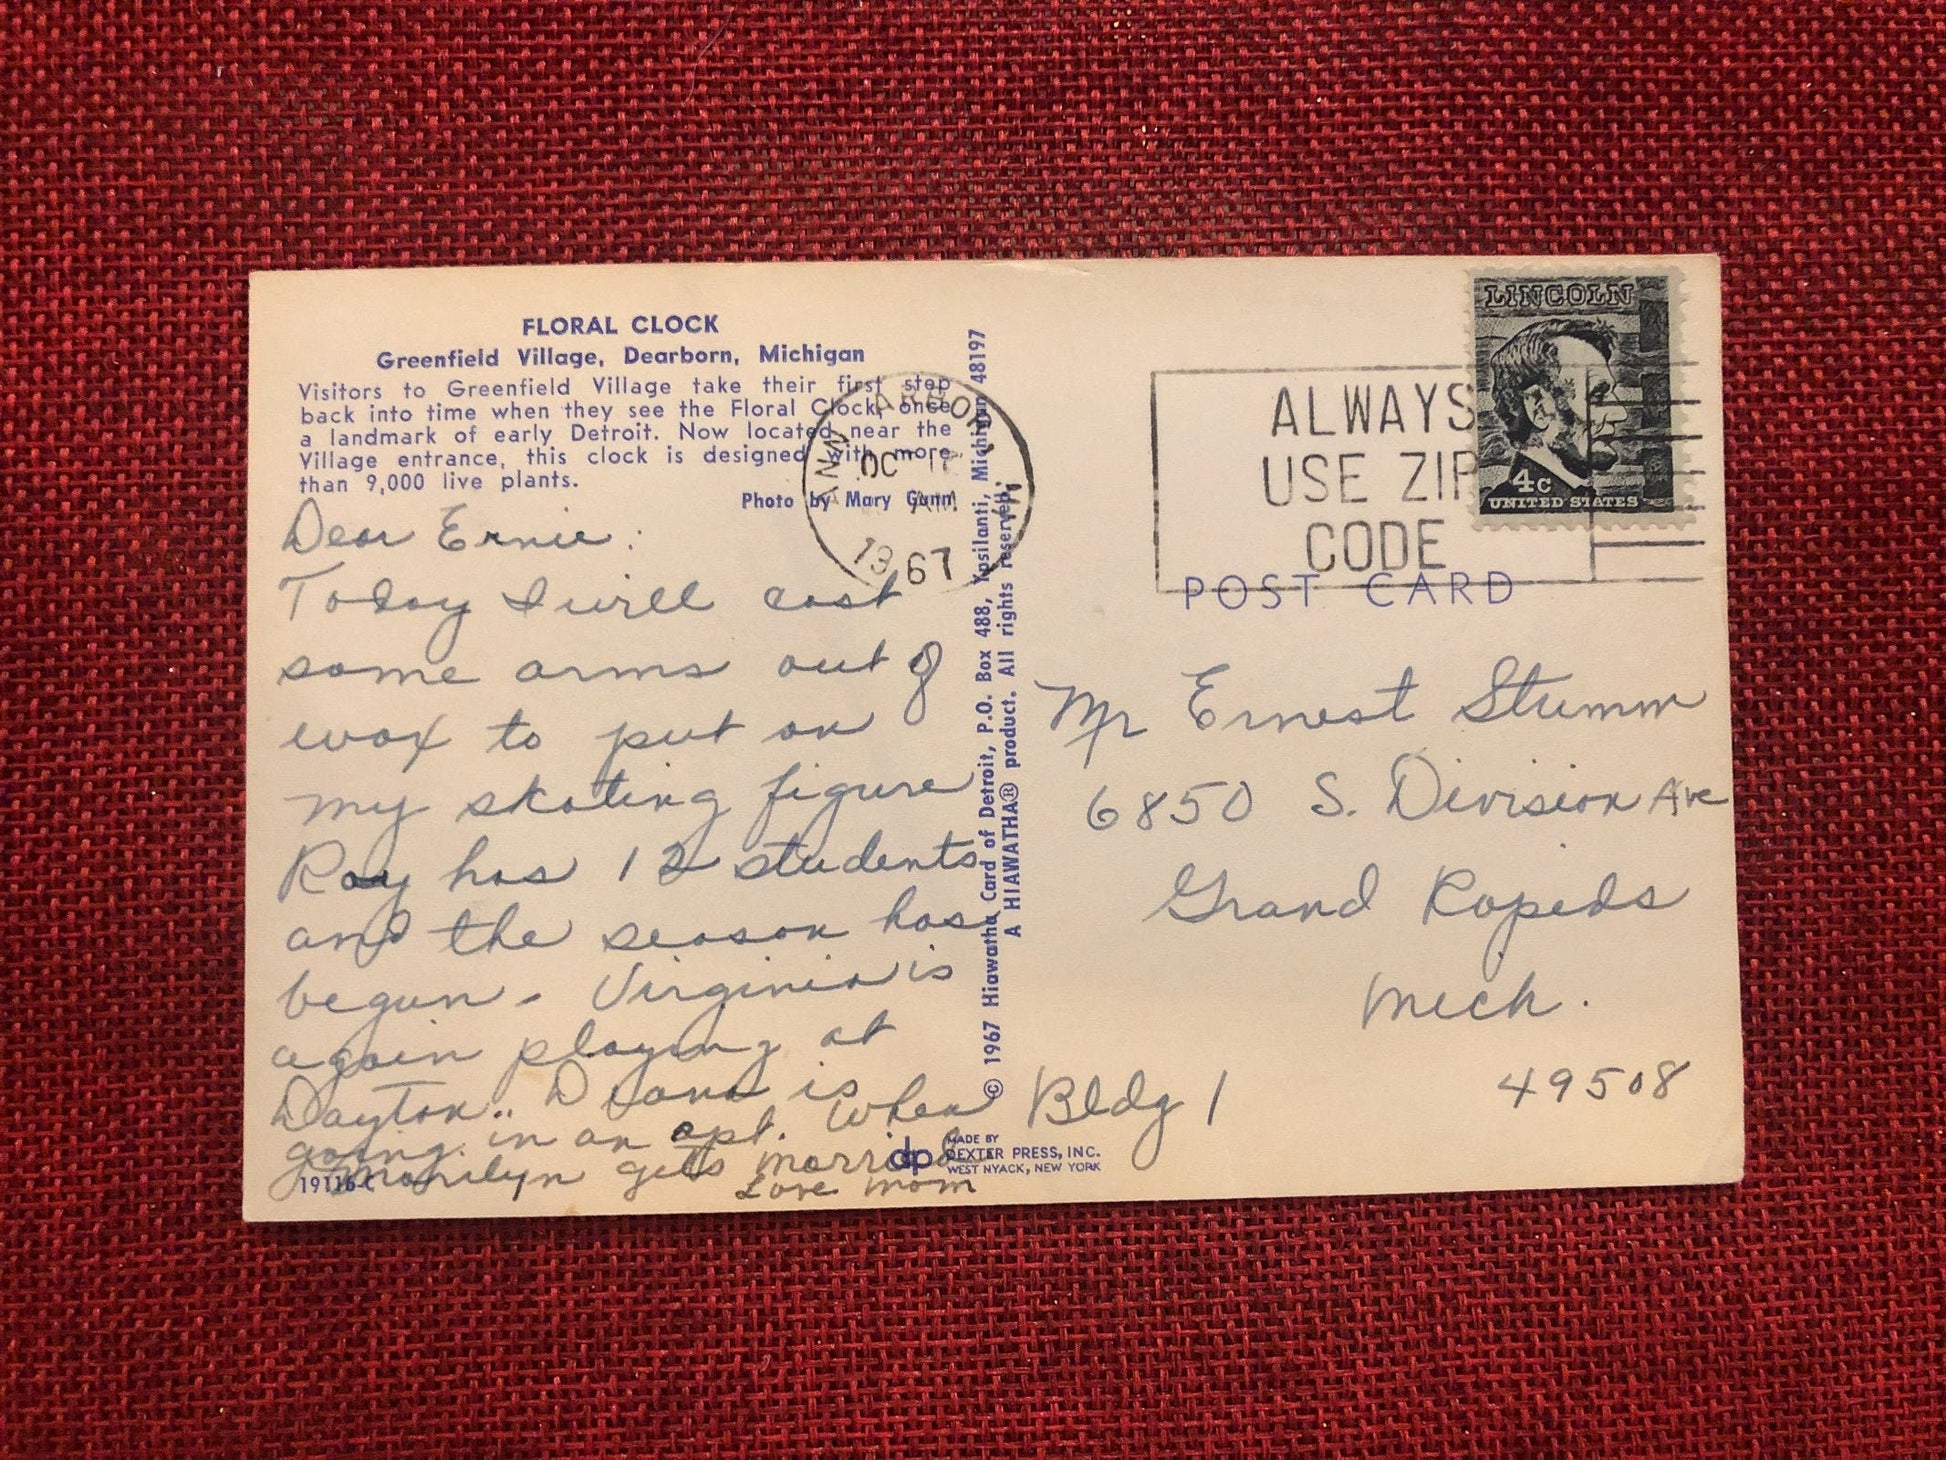 FLORAL CLOCK
Greenfield Village, Dearborn, Michigan
Visitors to Greenfield Village take their first step
back into time when they see the Floral Clock, once
a landmark of early Detroit. Now located near the
Village entrance, this clock is designed with more
than 9,000 live plants.
Photo by Mary Gunn
Dear Ernie:
Today I will cast
some arms out of
wax to put on
my skating figure
Ray has 12 students
and the season has
begun - Virginia is
again playing at
Dayton.. Diana is
going in an apt. when
Marilyn gets married
Love Mom
19116-C
© 1967 Hiawatha Card of Detroit, P.O. Box 488, Ypsilanti, Michigan 48197
A HIAWATHA® product. All rights reserved.
dp
MADE BY
DEXTER PRESS, INC.
WEST NYACK, NEW YORK
ANN ARBOR
OC
AM
1967
ALWAYS
USE ZIP
CODE
LINCOLN
4c
UNITED STATES
POST CARD
Mr Ernest Stumm
6850 S. Division Ave
Grand Rapids
Mich.
49508
Bldg 1